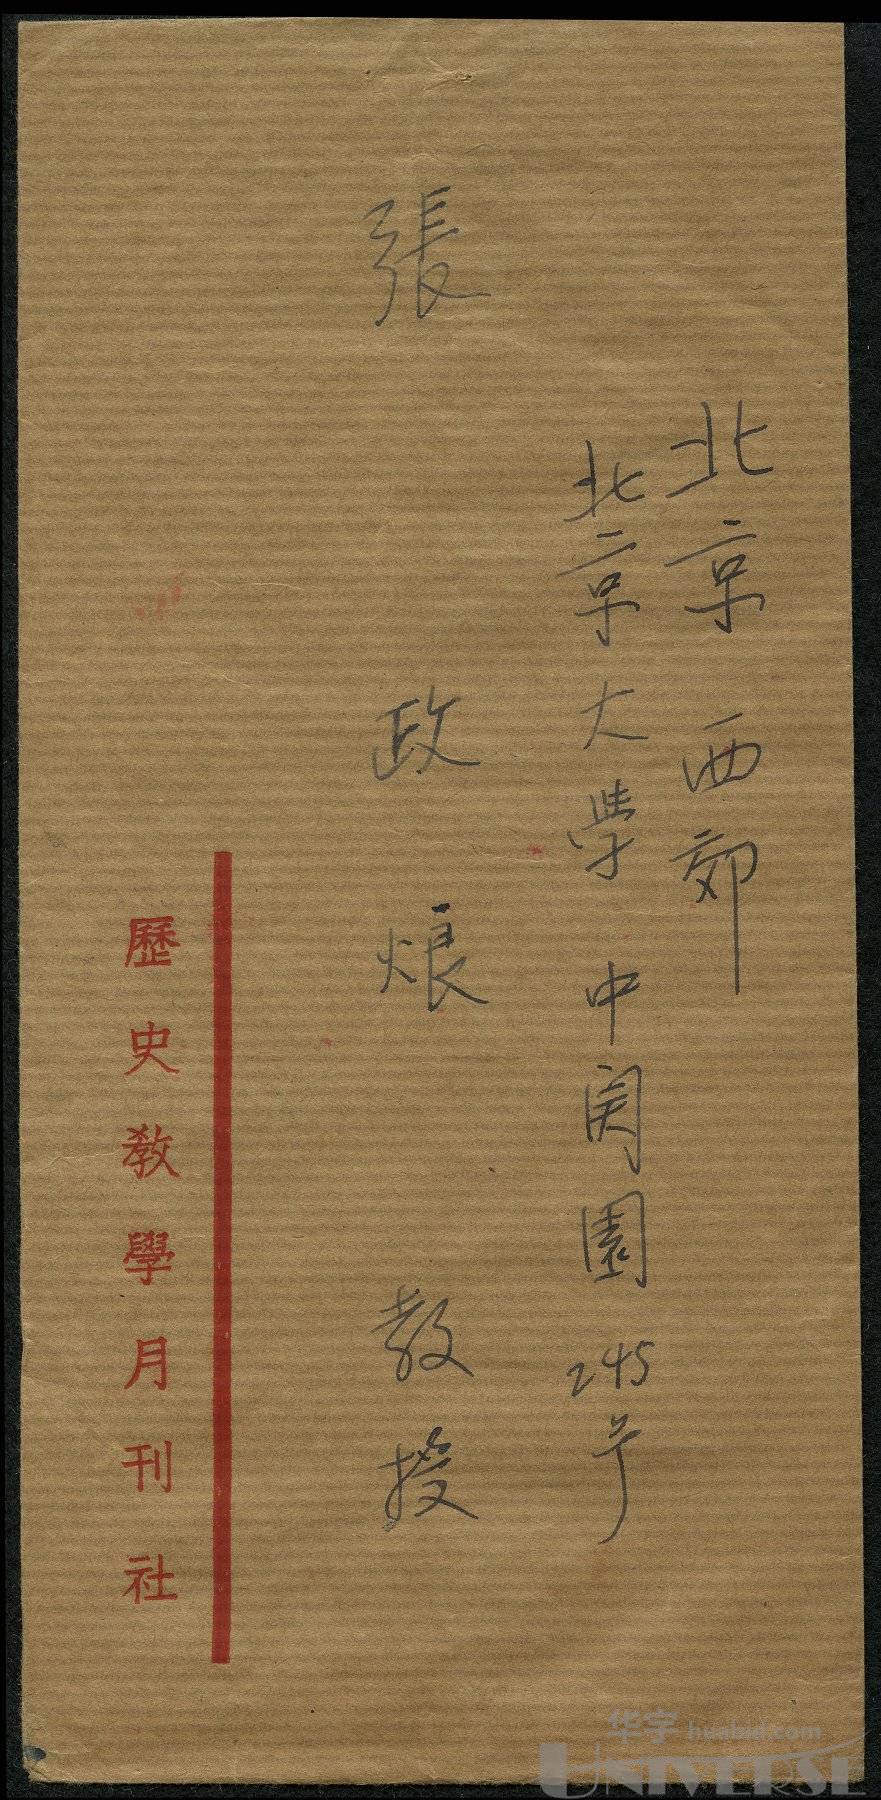 北京西郊
北京大学中関園245号
張政烺教授
歷史教學月刊社
华宇 huabid.com
UNIVERSE